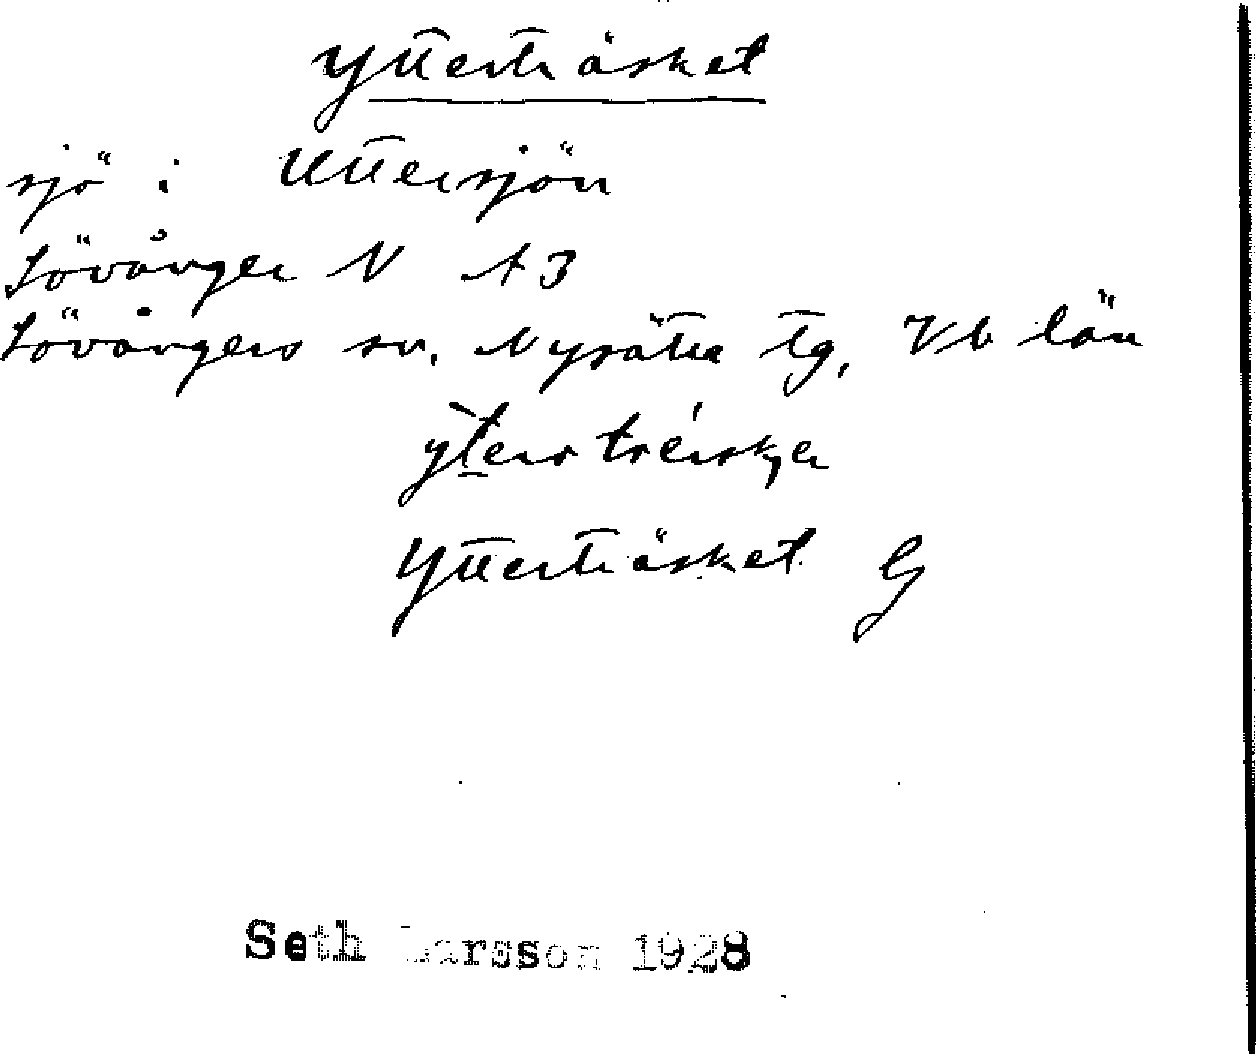 Ytterträsket
sjö i Uttersjön
Lövånger N A3
Lövångers sn. Nysätra tg, Vb län
Ytterträsket G
Seth Larsson 1928